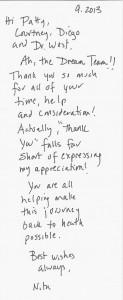 9.2013
Hi Patty,
Courtney, Diego
and Dr. West.
Ah, the Dream Team!!
Thank you so much
for all of your
time, help
and consideration!
Actually, "Thank
You" falls far
short of expressing
my appreciation!
You are all
helping make
this journey
back to health
possible.
Best wishes
always,
Nita